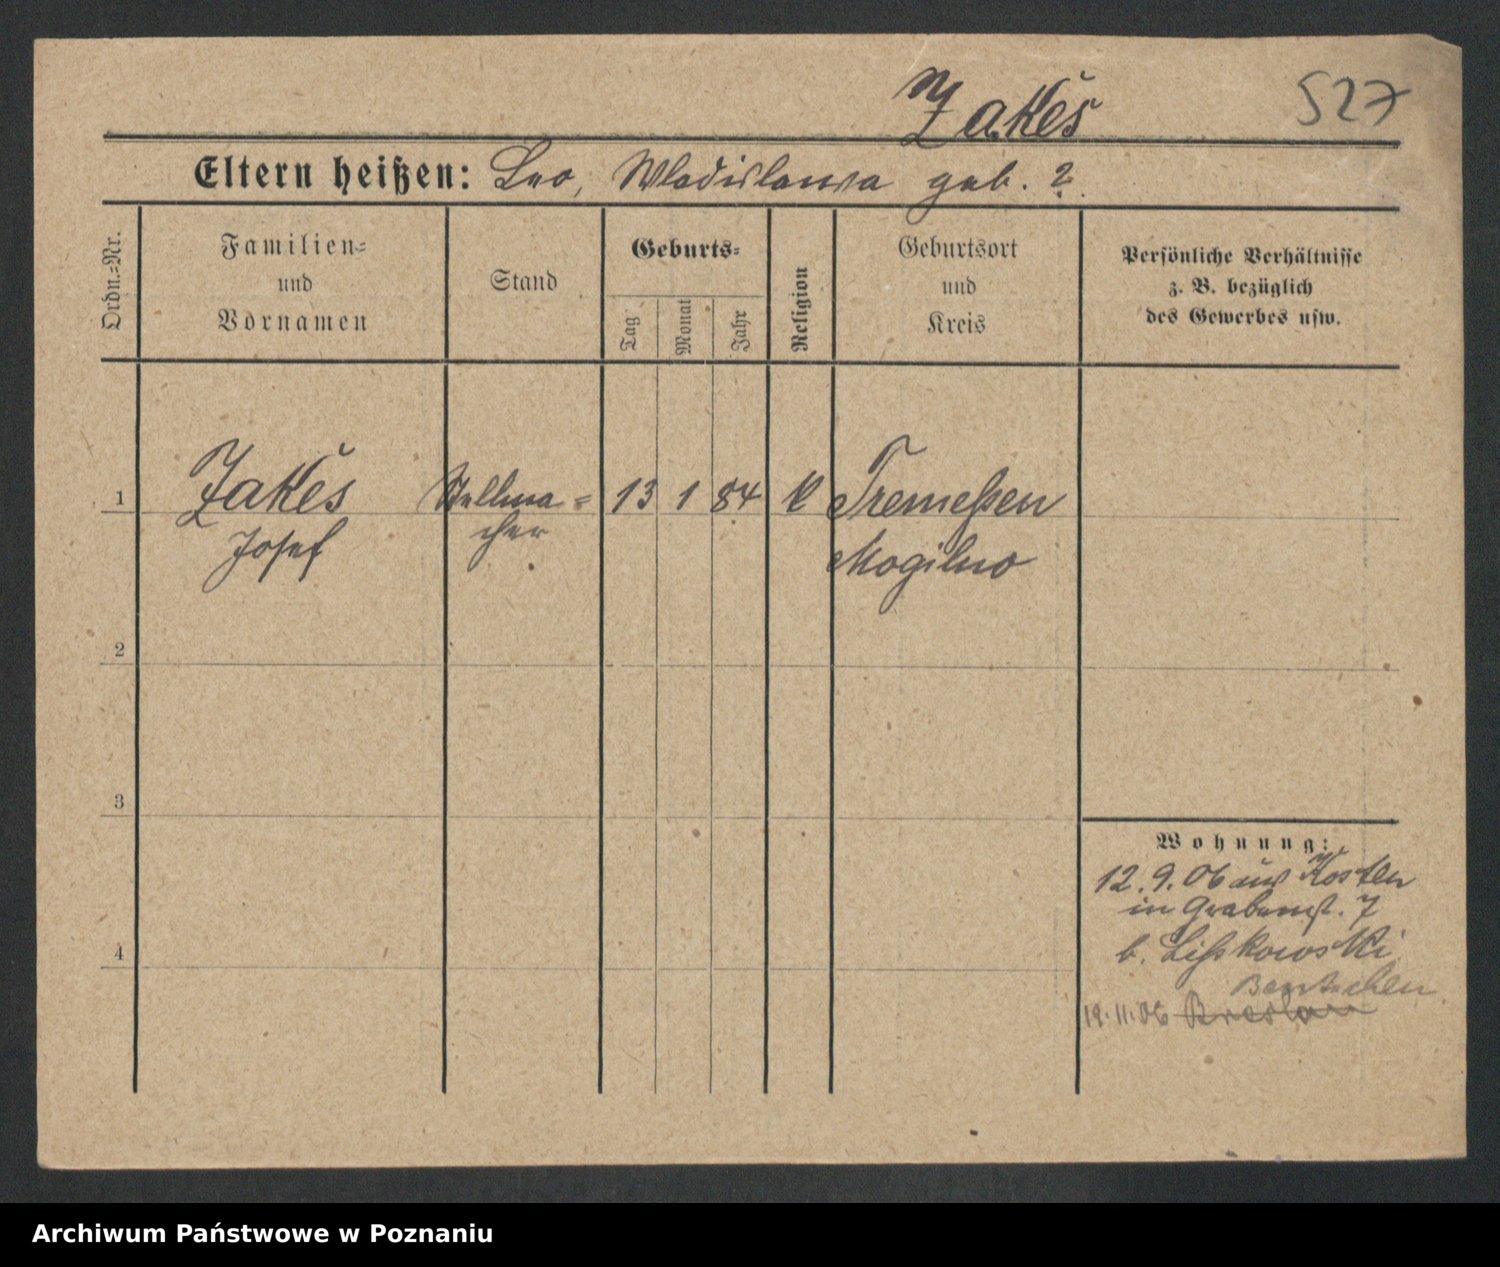 Zakěs
527
Eltern heißen: Leo, Wladislawa geb. ?
Ordn.=Nr.
Familien=
und
Vornamen
Stand
Geburts=
Tag
Monat
Jahr
Religion
Geburtsort
und
Kreis
Persönliche Verhältnisse
z. B. bezüglich
des Gewerbes usw.
1
Zakěs
Josef
Stellma=
cher
13 1 84
k
Tremeßen
Mogilno
2
3
4
Wohnung:
12.9.06 aus Kosten
in Grabenst. 7
b. Lißkowski
Bentschen
19.11.06 Breslau
Archiwum Państwowe w Poznaniu